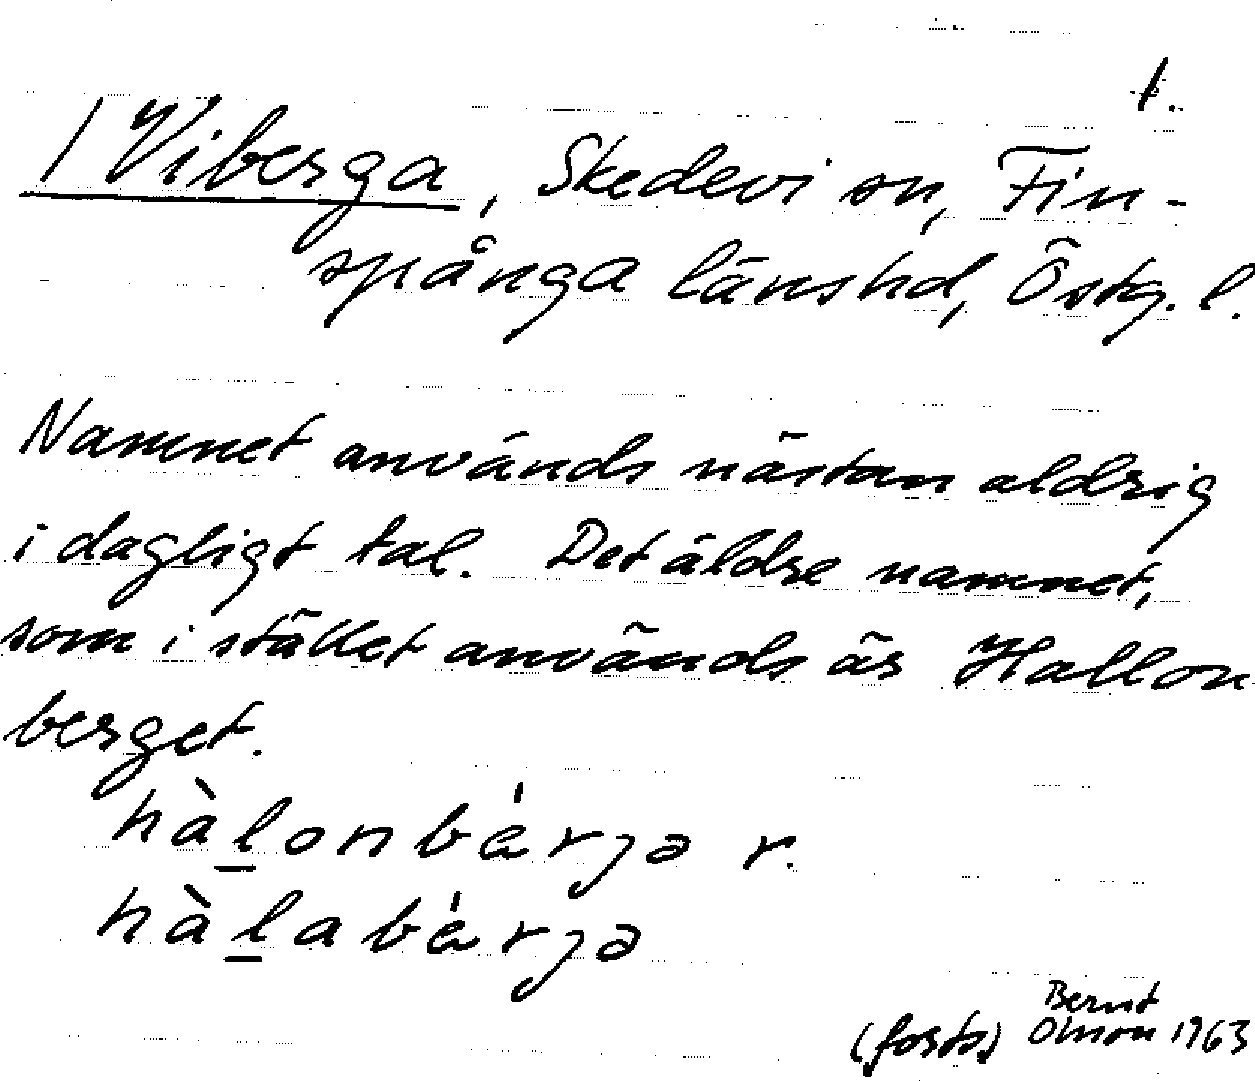 1.
/ Viberga, Skedevi sn, Fin-
spånga länshd, Östg. l.
Namnet används nästan aldrig
i dagligt tal. Det äldre namnet,
som i stället används är Hallon
berget.
hàlonbæ̀rjə r.
hàlabæ̀rjə
(forts) Bernt
Olsson 1963